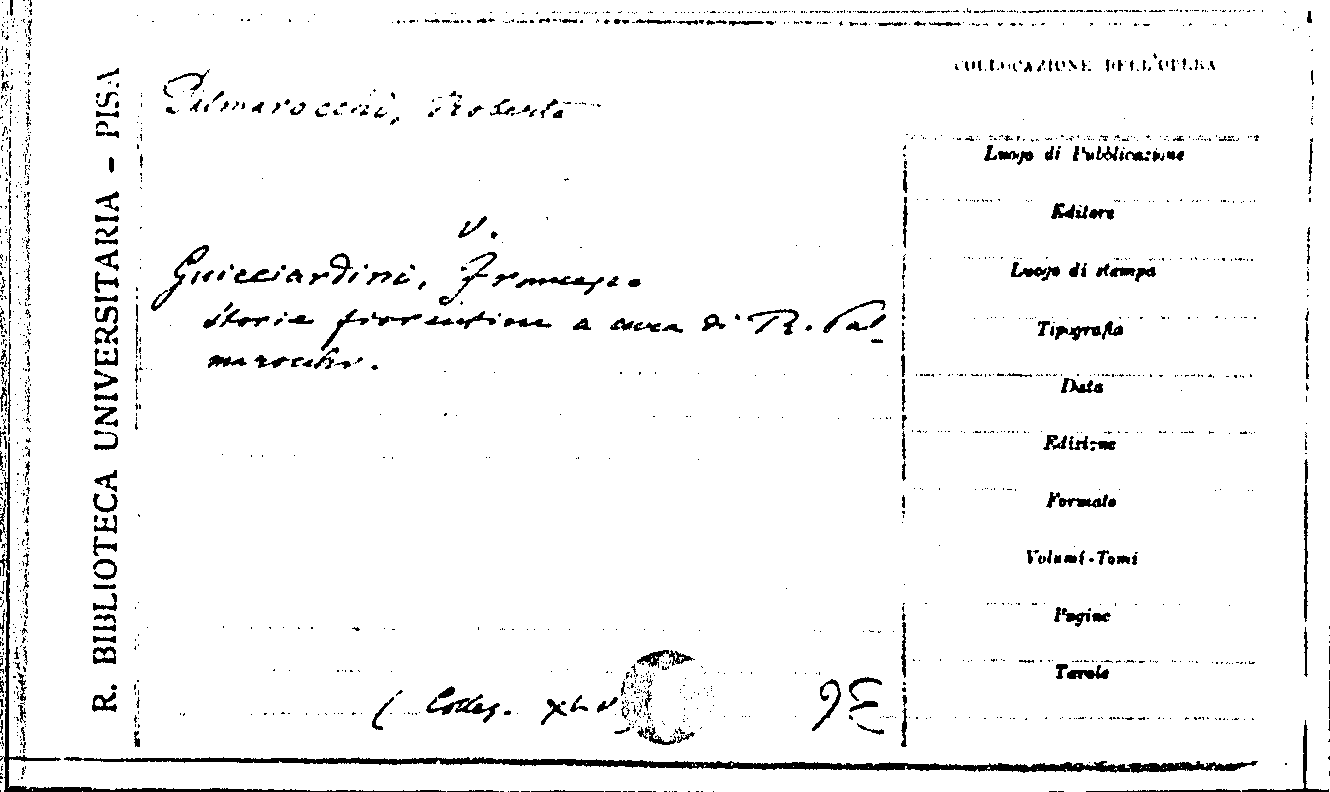 R. BIBLIOTECA UNIVERSITARIA - PISA
COLLOCAZIONE DELL'OPERA
Palmarocchi, Roberto
v.
Guicciardini, Francesco
Storie fiorentine a cura di R. Pal-
marocchi.
Luogo di Pubblicazione
Editore
Luogo di stampa
Tipografia
Data
Edizione
Formato
Volumi-Tomi
Pagine
Tavole
( Collez.